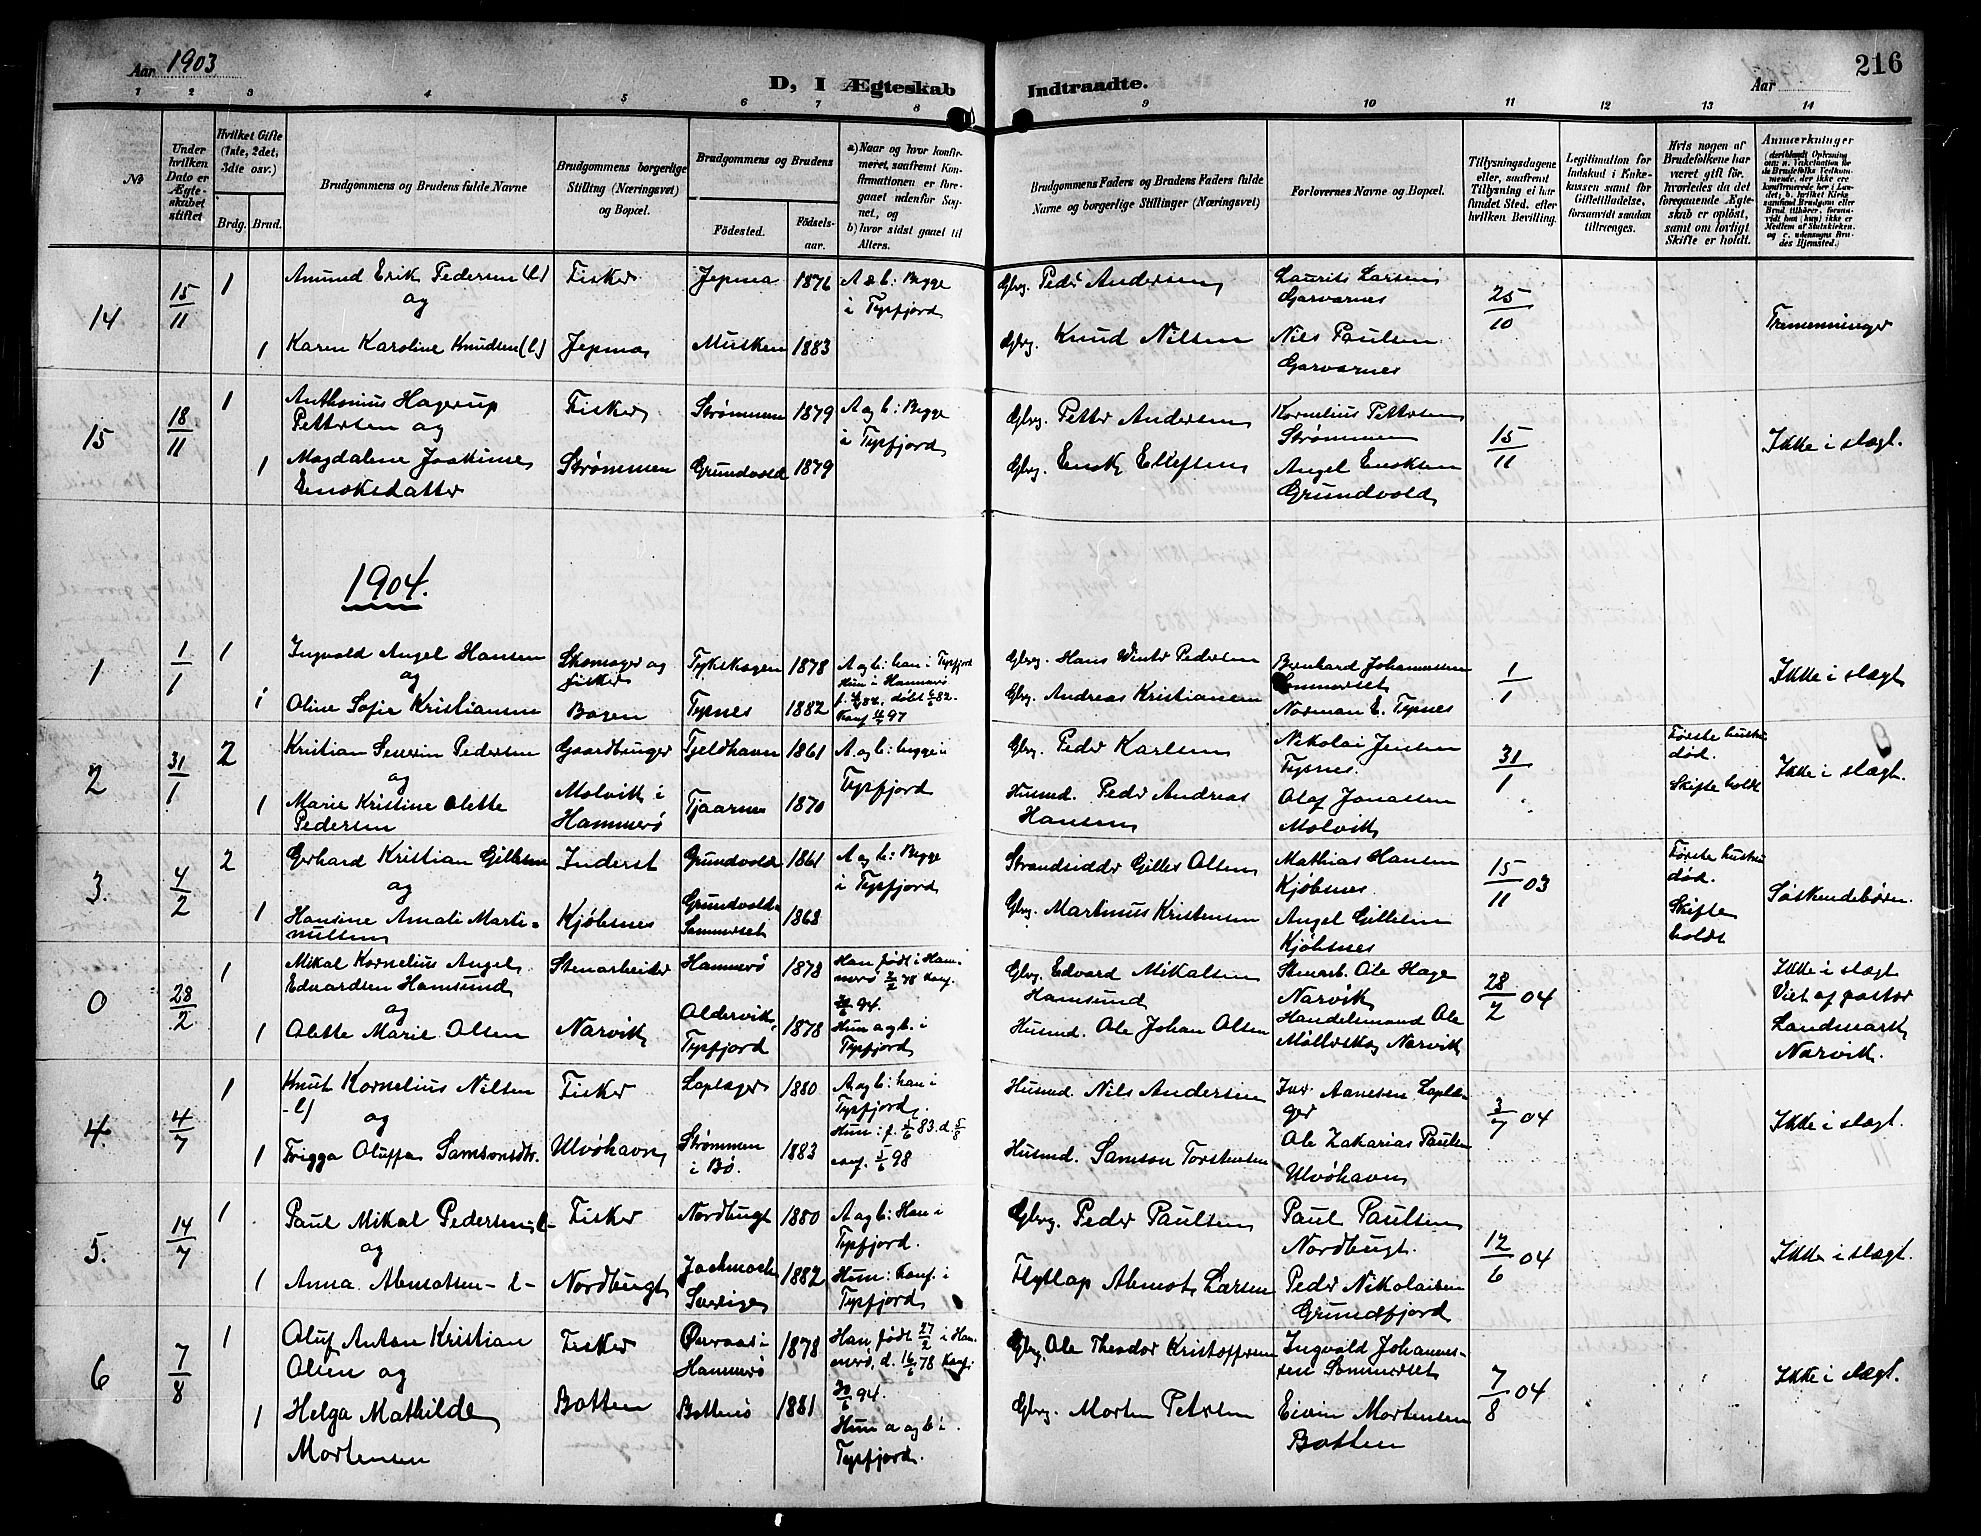 Aar 1903
D, I Ægteskab Indtraadte.
Aar
216
1 2 3 4 5 6 7 8 9 10 11 12 13 14
No
Under hvilken Dato er Ægteskabet stiftet
Hvilket Gifte (1ste, 2det, 3die osv.)
Brdg. Brud.
Brudgommens og Brudens fulde Navne
Brudgommens borgerlige Stilling (Næringsvei) og Bopæl.
Brudgommens og Brudens
Fødested. Fødselsaar.
a) Naar og hvor konfirmeret, saafremt Konfirmationen er foregaaet udenfor Sognet, og
b) hvor sidst gaaet til Alters.
Brudgommens Faders og Brudens Faders fulde Navne og borgerlige Stillinger (Næringsvei)
Forlovernes Navne og Bopæl.
Tillysningsdagene eller, saafremt Tillysning ei har fundet Sted, efter hvilken Bevilling.
Legitimation for Indskud i Enkekassen samt for Giftetilladelse, forsaavidt saadan tiltrænges.
Hvis nogen af Brudefolkene har været gift før, hvorledes da det foregaaende Ægteskab er opløst, samt om lovligt Skifte er holdt.
Anmærkninger
14 15/11 1 Amund Erik Pedersen (l) Fisker Jepma 1876 A & b: Begge Gbrg. Peder Andersen Laurits Larsen 25/10
og i Tysfjord Garvarnes Tremenninger
1 Karen Karoline Knudsen (l) Jepma Musken 1883 Gbrg. Knud Nilsen Nils Paulsen
Garvarnes
15 18/11 1 Anthonius Hagerup Fisker Strømmen 1879 A og b: Begge Gbrg. Petter Andersen Kornelius Pettersen 15/11 Ikke i slægt.
Pettersen og i Tysfjord Strømmen
1 Magdalene Joakime Strømmen Grundvold 1879 Gbrg. Enok Ellefsen Angel Enoksen
Enoksdatter Grundvold
1904.
1 1/1 1 Ingvald Angel Hansen Skomager og Tykskogen 1878 A og b: han i Tysfjord Gbrg. Hans Winter Pedersen Bernhard Johannessen 1/1 Ikke i slægt
og fisker Hun i Hammerø Sommerset
1 Oline Sofie Kristiansen Bogen Tysnes 1882 Gbrg. Andreas Kristiansen Norman E. Tysnes
2 31/1 2 Kristian Severin Pedersen Gaardbruger Tjeldhavn 1861 A og b: begge i Gbrg. Peder Karlsen Nikolai Jensen 31/1 Første hustru Ikke i slægt.
og Molvik i Tysfjord Tysnes. død.
1 Marie Kristine Olette Hammerø Tjaarnes 1870 Husmd. Peder Andreas Olaf Jonassen Skifte holdt
Pedersen Hansen Molvik
3. 4/2 2 Gerhard Kristian Gillesen Inderst Grundvold 1861 A og b: Begge Strandsidder Gilles Olsen Mathias Hansen 15/11 03 Første hustru Søskendebørn.
og i Tysfjord Kjøbsnes. død.
1 Hansine Amalie Marti- Kjøbsnes Grundvold 1868 Gbrg. Martinus Kristensen Angel Gillesen Skifte
nussen Sommerset Kjøbsnes holdt
0 28/2 1 Mikal Kornelius Angel Stenarbeider Hammerø 1878 Han født i Ham- Gbrg. Edvard Mikalsen Stenarb. Ole Hage 28/2 04 Ikke i slægt
Edvardsen Hamsund merø 78 Konf. Hamsund Narvik Viet af pastor
og 94. Handelsmand Ole Landmark
1 Olette Marie Olsen Narvik Oldervik, 1878 Hun a og b. i Husmd. Ole Johan Olsen Narvik Narvik.
Tysfjord Tysfjord
4. 4/7 1 Knut Kornelius Nilsen Fisker Laplager 1880 A og b: han i Husmd. Nils Andersen Aanesen Lapla- 3/7 04 Ikke i slægt.
-l) og Tysfjord. ger
Hun: f. 5/6 83. d. 5/8
1 Frigga Oluffa Samsonsdtr. Ulvøhavn Strømmen 1883 konf. 5/6 98 Husmd. Samson Torstensen Ole Zakarias Paulsen
i Bø. Ulvøhavn
5. 14/7 1 Paul Mikal Pedersen -l- Fisker Nordbugt 1880 A og b: Han i Gbrg. Peder Paulsen Paul Paulsen 12/6 04 Ikke i slægt.
og Tysfjord. Nordbugt.
1 Anna Abmotsen -l- Nordbugt Jockmock 1882 Hun: Konf. i Flytlap Abmot Larsen Peder Nikolaisen
Sverige Tysfjord Grundfjord
6 7/8 1 Oluf Anton Kristian Fisker i 1878 Han født 27/2 i Ham- Gbrg. Ole Theodor Kristoffersen Ingvald Johannes- 7/8 04 Ikke i slægt.
Olsen og Hammerø merø, d. 16/6 78 Konf. sen Sommerset
94.
1 Helga Mathilde Botten Botten 1881 Hun a og b i Gbrg. Morten Petersen Eivin Mortensen
Mortensen Tysfjord. Botten